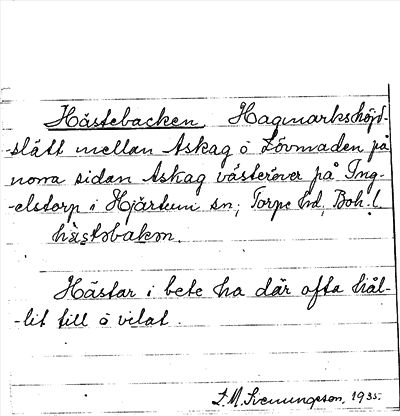 Hästebacken. Hagmarkshöjd-
-slätt mellan Askag o Lövmaden på
norra sidan Askag västeröver på Ing-
-elstorp i Hjärtum sn; Torpe hd, Boh. l.
hästəbakən.
Hästar i bete ha där ofta hål-
-lit till o vilat.
F.M. Svenungson, 1935.